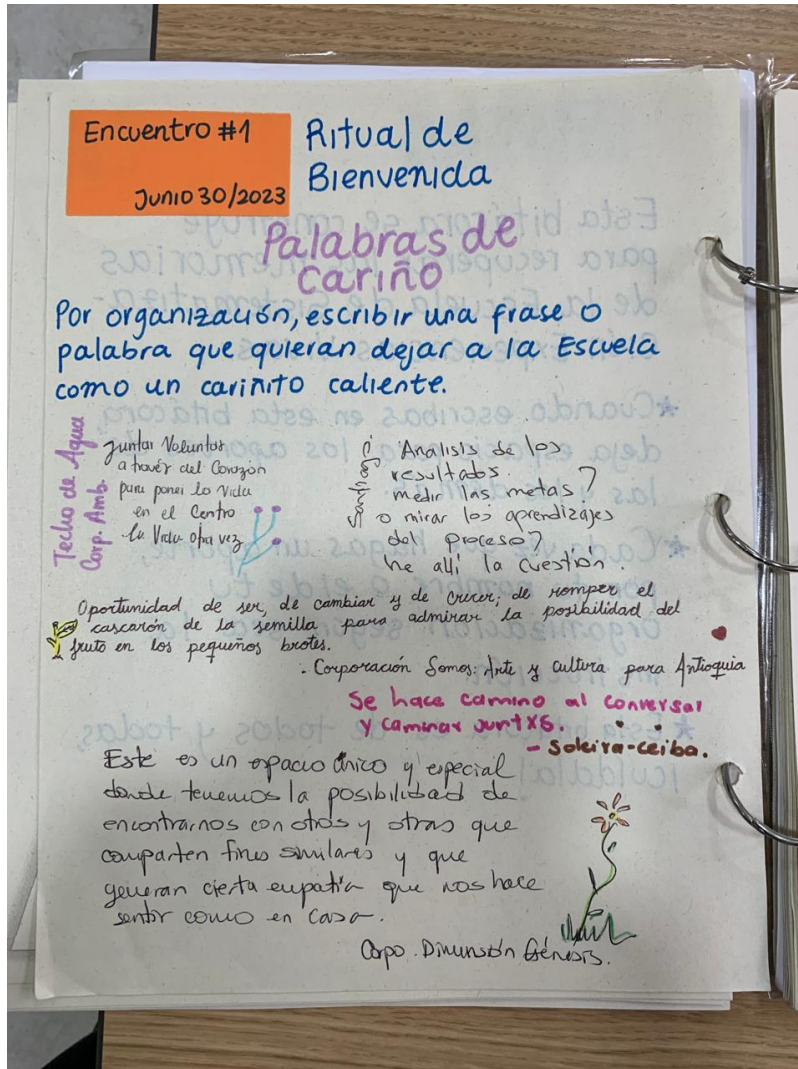 Encuentro #1
Junio 30/2023
Ritual de
Bienvenida
Palabras de
cariño
Por organización, escribir una frase o
palabra que quieran dejar a la Escuela
como un cariñito caliente.
Techo de Agua
Corp. Amb.
Juntar Voluntas
a través del Corazón
para poner la Vida
en el Centro
la Vida otra vez
Analisis de los
resultados.
medir las metas?
o mirar los aprendizajes
del proceso?
he allí la cuestión.
Oportunidad de ser, de cambiar y de crecer; de romper el
cascarón de la semilla para admirar la posibilidad del
fruto en los pequeños brotes.
- Corporación Somos: Arte y cultura para Antioquia
Se hace camino al conversar
y caminar juntxs.
- Soleira-ceiba.
Este es un espacio único y especial
donde tenemos la posibilidad de
encontrarnos con otros y otras que
comparten fines similares y que
generan cierta empatía que nos hace
sentir como en casa.
Corpo. Dimensión Génesis.